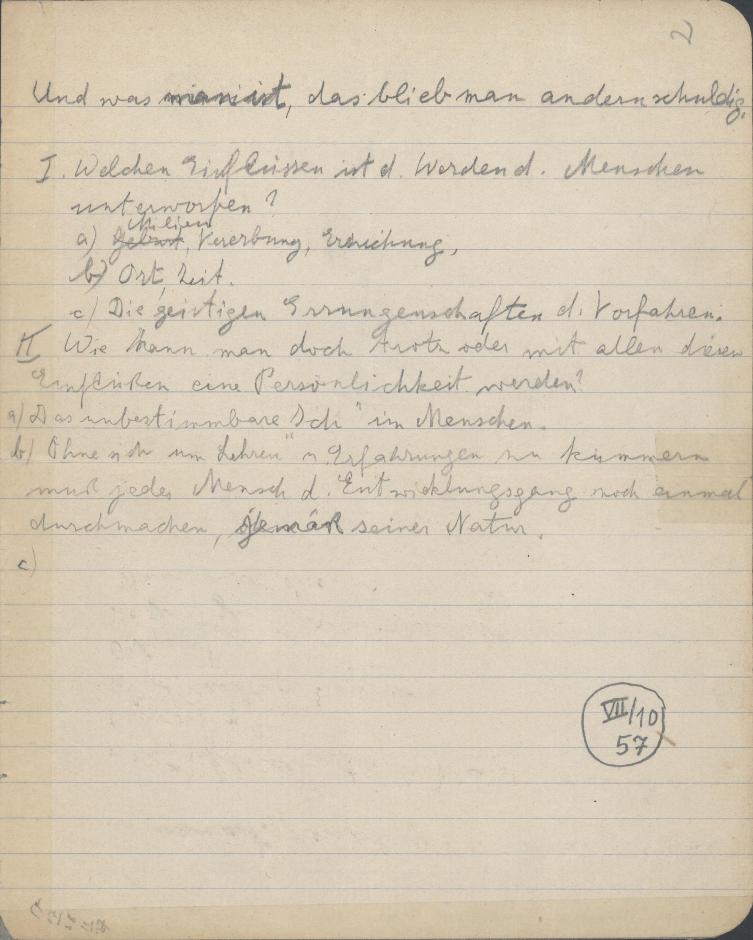 2
Und was man ist, das blieb man andern schuldig.
I. Welchen Einflüssen ist d. Werden d. Menschen
unterworfen?
Milieu
a) Geburt, Vererbung, Erziehung,
b) Ort, Zeit.
c) Die geistigen Errungenschaften d. Vorfahren.
II Wie kann man doch trotz oder mit allen diesen
Einflüßen eine Persönlichkeit werden?
a) Das unbestimmbare "Ich" im Menschen.
b) Ohne sich um "Lehren" u. Erfahrungen zu kümmern
muß jeder Mensch d. Entwicklungsgang noch einmal
durchmachen, gemäß seiner Natur.
c)
VII/10
57